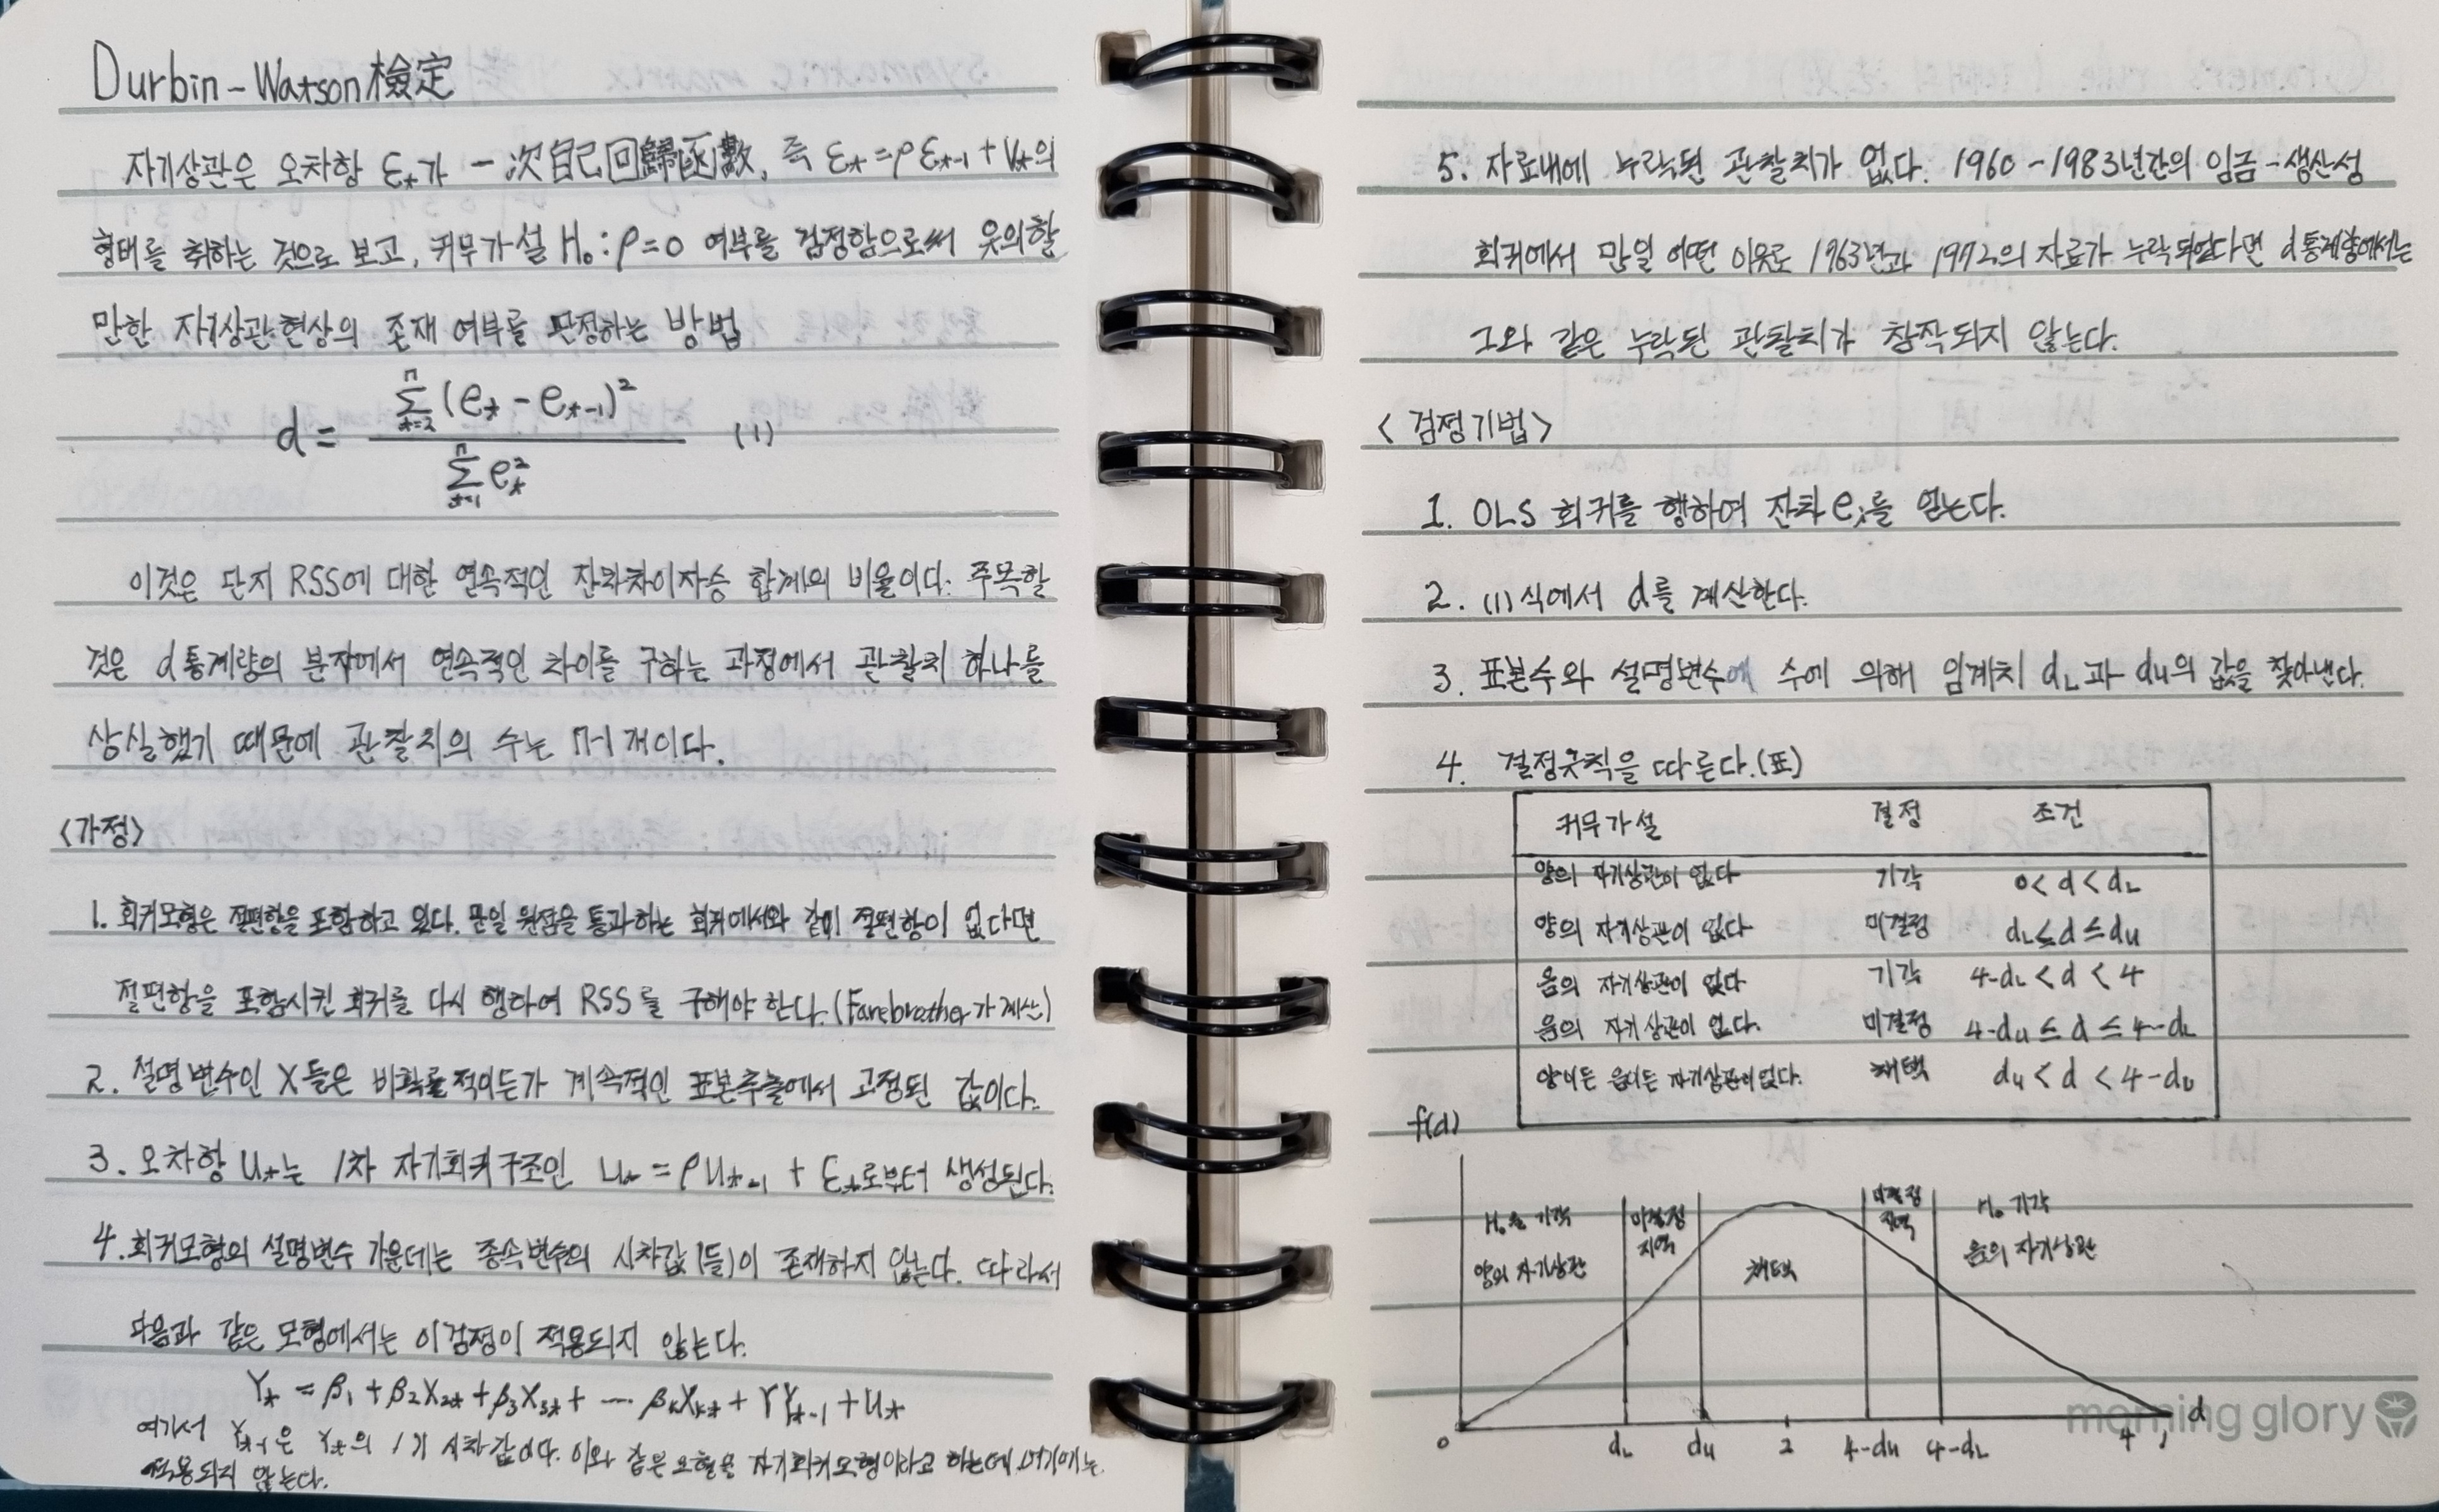 Durbin-Watson 檢定
자기상관은 오차항 εₜ가 一次自己回歸函數, 즉 εₜ=ρεₜ₋₁+Vₜ의
형태를 취하는 것으로 보고, 귀무가설 H₀:ρ=0 여부를 검정함으로써 유의할
만한 자기상관현상의 존재 여부를 판정하는 방법
d = \frac{\sum_{t=2}^{n}(eₜ-eₜ₋₁)²}{\sum_{t=1}^{n}eₜ²} (1)
이것은 단지 RSS에 대한 연속적인 잔차차이자승 합계의 비율이다. 주목할
것은 d통계량의 분자에서 연속적인 차이를 구하는 과정에서 관찰치 하나를
상실했기 때문에 관찰치의 수는 n-1개이다.
<가정>
1. 회귀모형은 절편항을 포함하고 있다. 만일 원점을 통과하는 회귀에서와 같이 절편항이 없다면
절편항을 포함시킨 회귀를 다시 행하여 RSS를 구해야 한다.(Farebrother가 계산)
2. 설명변수인 X들은 비확률적이든가 계속적인 표본추출에서 고정된 값이다.
3. 오차항 uₜ는 1차 자기회귀구조인 uₜ=ρuₜ₋₁+εₜ로부터 생성된다.
4. 회귀모형의 설명변수 가운데는 종속변수의 시차값(들)이 존재하지 않는다. 따라서
다음과 같은 모형에서는 이검정이 적용되지 않는다.
Yₜ=β₁+β₂X₂ₜ+β₃X₃ₜ+…βₖXₖₜ+γYₜ₋₁+uₜ
여기서 Yₜ₋₁은 Yₜ의 1기 시차값이다. 이와 같은 모형을 자기회귀모형이라고 하는데 여기에는
적용되지 않는다.
5. 자료내에 누락된 관찰치가 없다. 1960-1983년간의 임금-생산성
회귀에서 만일 어떤 이유로 1963년과 1972의 자료가 누락되었다면 d통계량에서는
그와 같은 누락된 관찰치가 참작되지 않는다.
<검정기법>
1. OLS 회귀를 행하여 잔차 eᵢ를 얻는다.
2. (1)식에서 d를 계산한다.
3. 표본수와 설명변수에 수에 의해 임계치 dL과 du의 값을 찾아낸다.
4. 결정규칙을 따른다.(표)
귀무가설 결정 조건
양의 자기상관이 없다 기각 0<d<dL
양의 자기상관이 없다 미결정 dL≤d≤du
음의 자기상관이 없다 기각 4-dL<d<4
음의 자기상관이 없다. 미결정 4-du≤d≤4-dL
양이든 음이든 자기상관이 없다. 채택 du<d<4-du
f(d)
H₀를 기각
양의 자기상관
미결정
지역
채택
미결정
지역
H₀ 기각
음의 자기상관
0 dL du 2 4-du 4-dL 4 d
morning glory